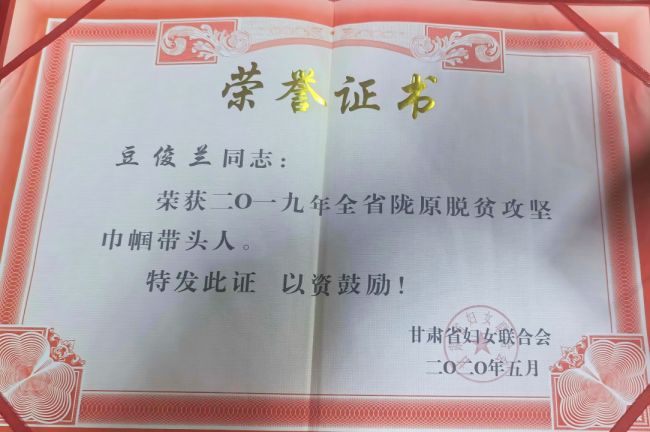 荣誉证书
豆俊兰同志：
荣获二〇一九年全省陇原脱贫攻坚
巾帼带头人。
特发此证 以资鼓励！
甘肃省妇女联合会
二〇二〇年五月